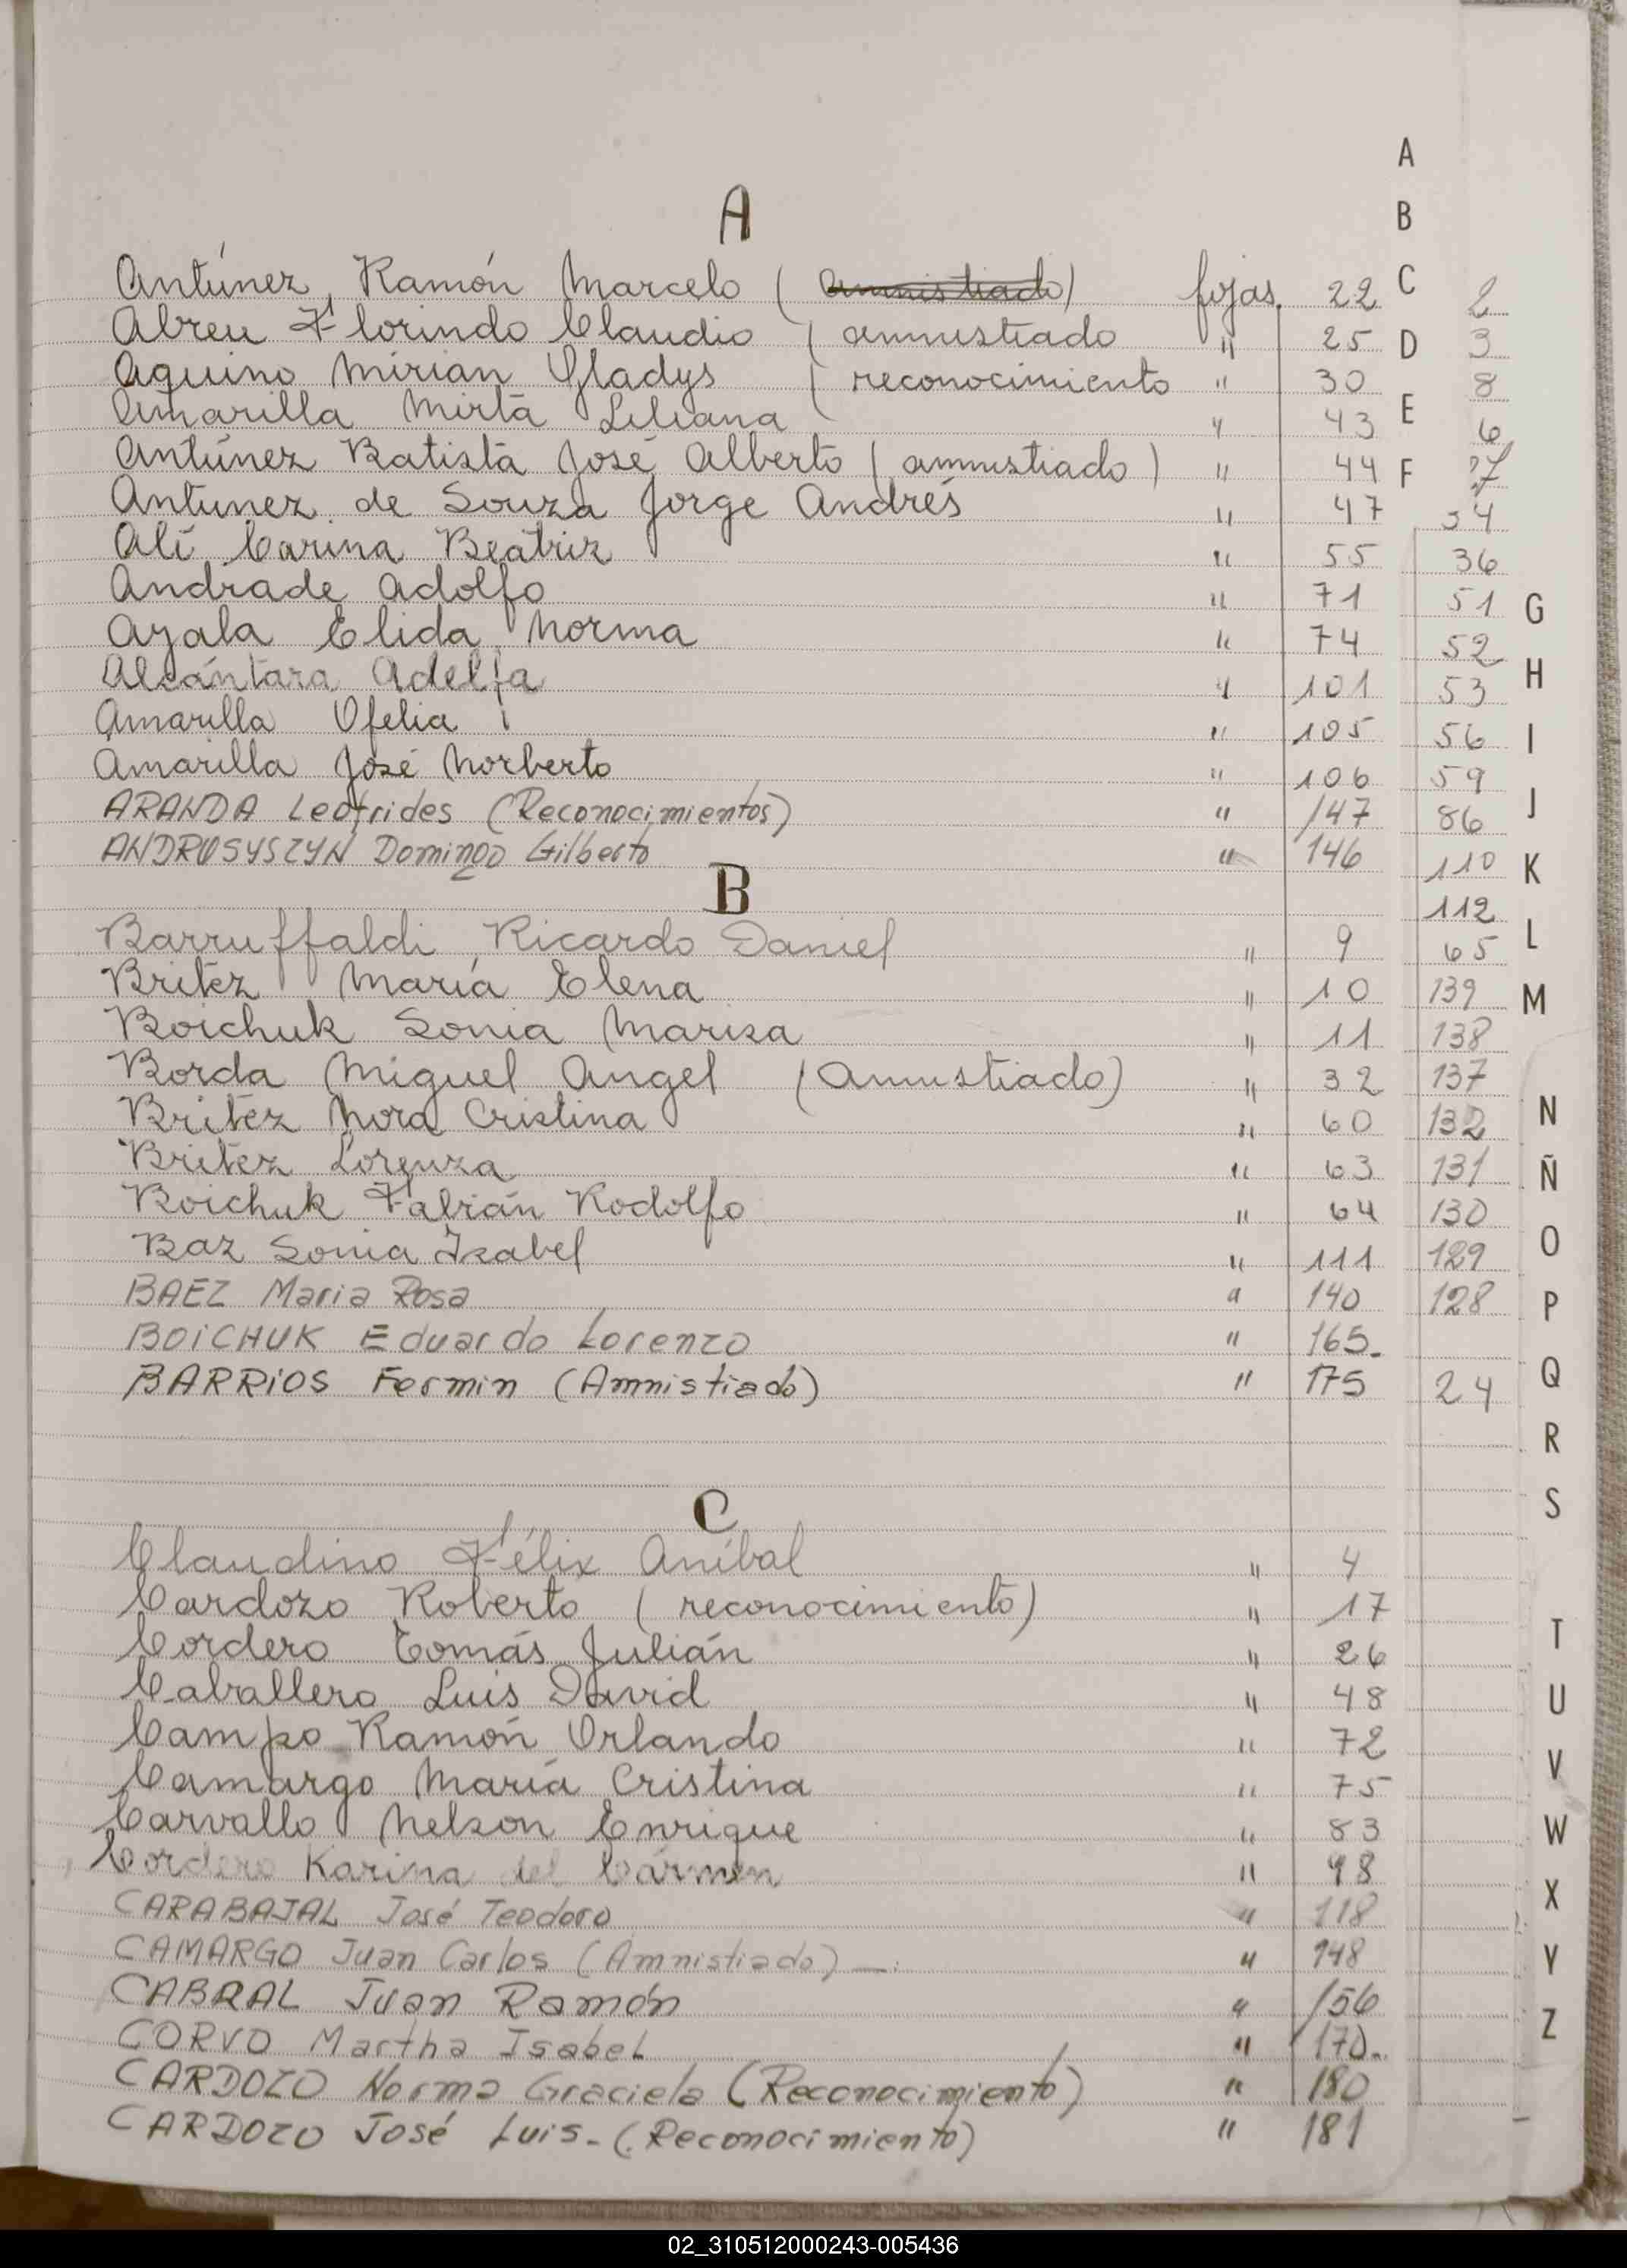 A
Antúnez, Ramón Marcelo (amnistiado) fojas. 22
Abreu Florindo Claudio (amnistiado " 25
Aquino Mirian Gladys (reconocimiento " 30
Amarilla Mirta Liliana " 43
Antúnez Batista José Alberto (amnistiado) " 44
Antunez de Souza Jorge Andrés " 47
Alí Carina Beatriz " 55
Andrade Adolfo " 71
Ayala Elida Norma " 74
Alcántara Adelfa " 101
Amarilla Ofelia " 105
Amarilla José Norberto " 106
ARANDA Leotrides (Reconocimientos) " 147
ANDROSYSZYN Domingo Gilberto " 146
B
Barruffaldi Ricardo Daniel " 9
Britez María Elena " 10
Boichuk Sonia Mariza " 11
Borda Miguel Angel (amnistiado) " 32
Britez Nora Cristina " 60
Britez Lorenza " 63
Boichuk Fabián Rodolfo " 64
Baz Sonia Isabel " 111
BAEZ Maria Rosa " 140
BOiCHUK Eduardo Lorenzo " 165.
BARRiOS Fermin (Amnistiado) " 175
C
Claudino Félix Aníbal " 4
Cardozo Roberto (reconocimiento) " 17
Cordero Tomás Julián " 26
Caballero Luis David " 48
Campo Ramón Orlando " 72
Camargo María Cristina " 75
Carvallo Nelson Enrique " 83
Cordero Karina del Cármen " 98
CARABAJAL José Teodoro " 118
CAMARGO Juan Carlos (Amnistiado) —. " 148
CABRAL Juan Ramón " 156
CORVO Martha Isabel " 170.
CARDOZO Norma Graciela (Reconocimiento) " 180
CARDOZO José Luis-(Reconocimiento) " 181
2
3
8
6
34
36
51
52
53
56
59
86
110
112
65
139
138
137
132
131
130
129
128
24
A
B
C
D
E
F
G
H
I
J
K
L
M
N
Ñ
O
P
Q
R
S
T
U
V
W
X
Y
Z
02_310512000243-005436